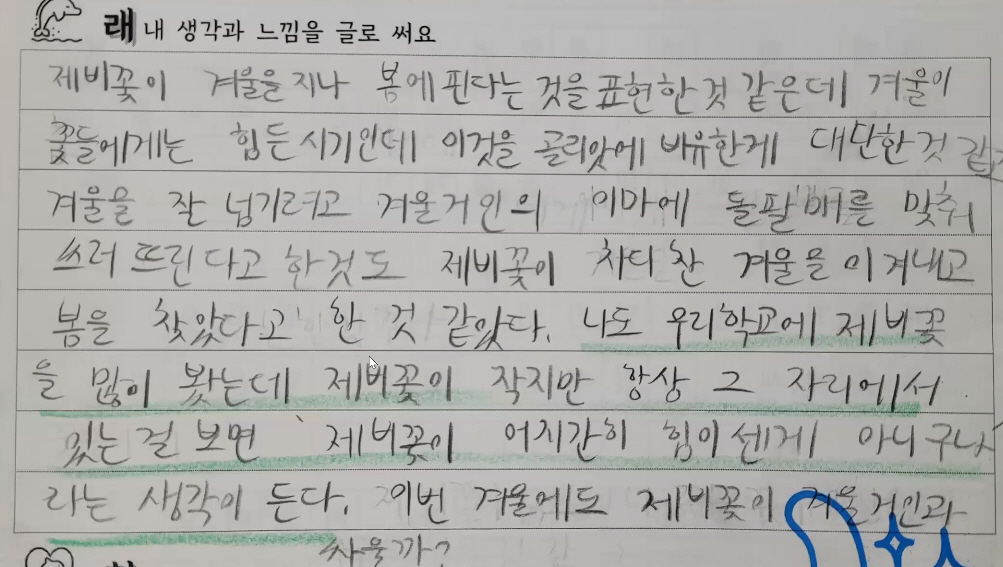 래 내 생각과 느낌을 글로 써요
제비꽃이 겨울을 지나 봄에 핀다는 것을 표현한것 같은데 겨울이
꽃들에게는 힘든시기인데 이것을 골리앗에 비유한게 대단한것 같고
겨울을 잘 넘기려고 겨울거인의 이마에 돌팔매를 맞춰
쓰러 뜨린다고 한것도 제비꽃이 차디찬 겨울을 이겨내고
봄을 찾았다고 한 것 같았다. 나도 우리학교에 제비꽃
을 많이 봤는데 제비꽃이 작지만 항상 그 자리에서
있는 걸 보면 제비꽃이 어지간히 힘이 센게 아니구나
라는 생각이 든다. 이번 겨울에도 제비꽃이 겨울거인과
싸울까?